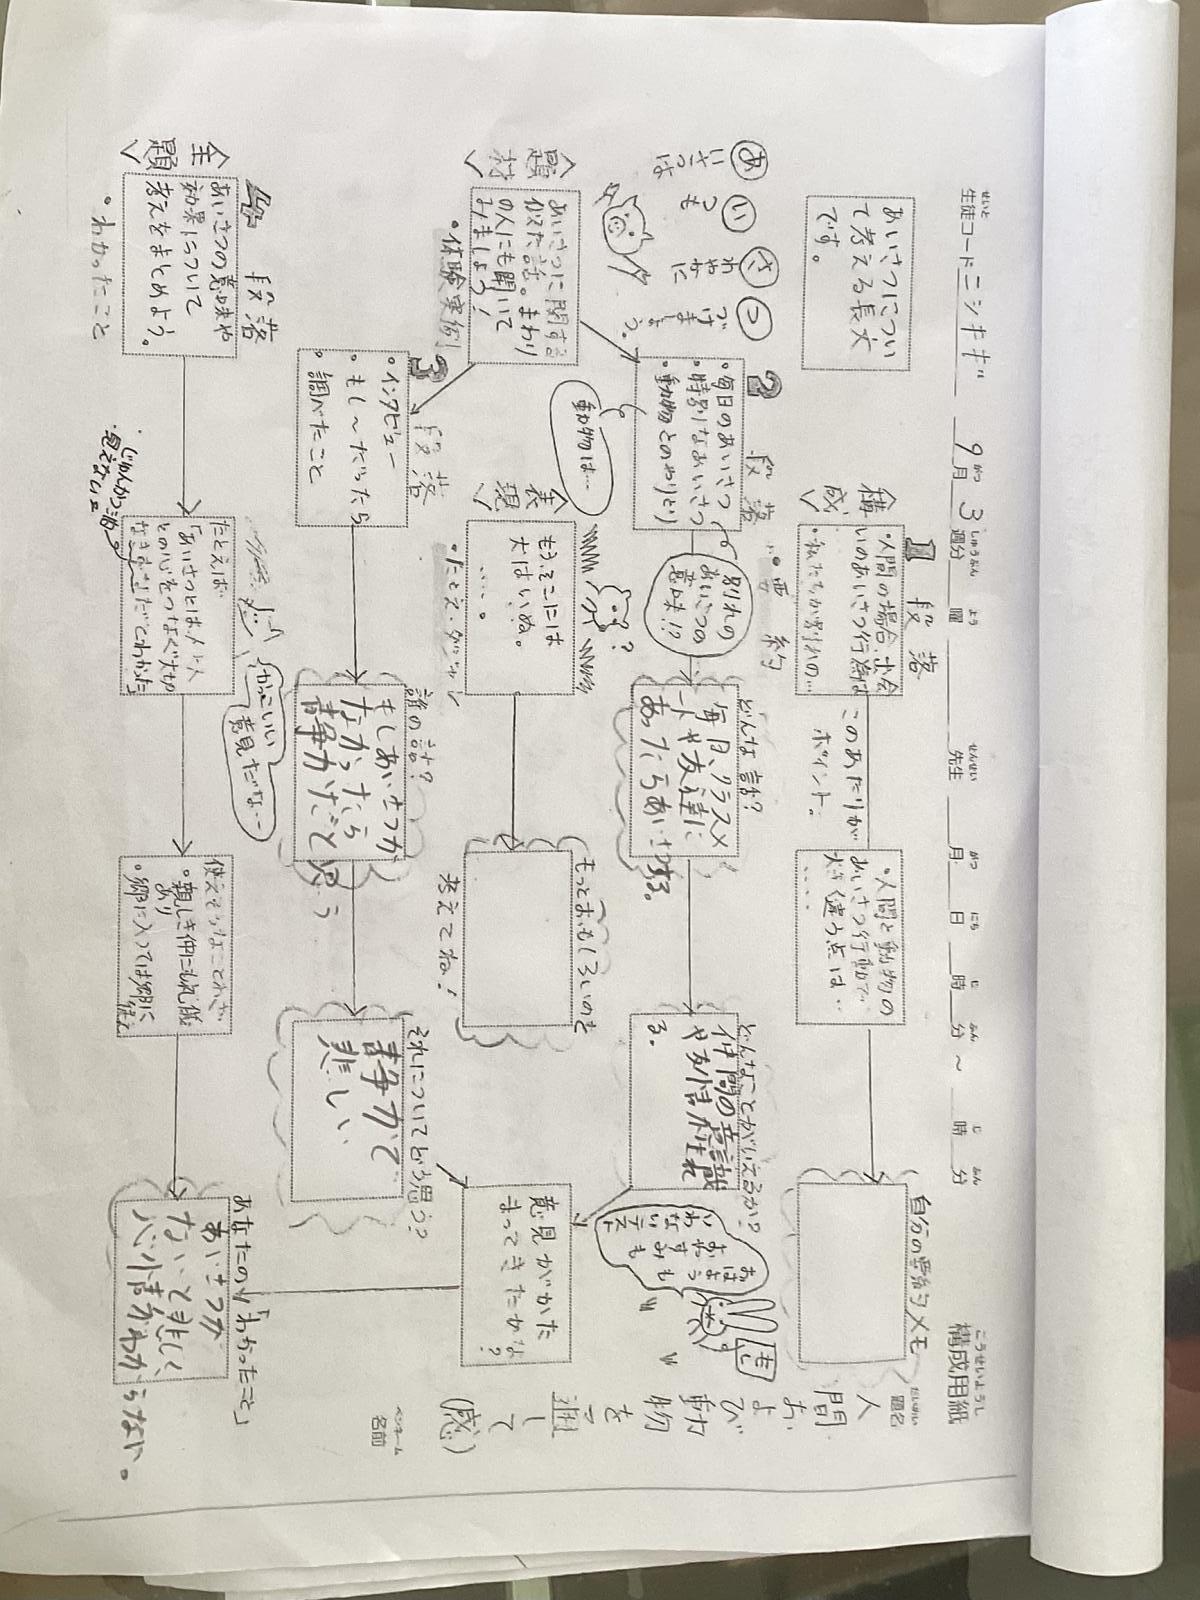 構成用紙
こうせいようし
題名
だいめい
人間および動物を 通して(感)
ペンネーム
名前
せいと
生徒コード ニシキギ
9月3週分 曜
がつ しゅうぶん よう
先生
せんせい
月 日 時 分 ~ 時 分
がつ にち じ ふん じ ふん
あいさつについ
て考える長文
です。
あ いさつは
い つも
さ わやかに
つ づけましょう。
<構成>
1段落
・人間の場合、出会
いのあいさつ行動は
・私たちが別れの…
このあたりが
ポイント。
・人間と動物の
あいさつ行動で
大きく違う点は…
自分の要約メモ
・要約
<題材>
あいさつに関する
似た話。まわり
の人にも聞いて
みましょう!
・体験実例
2段落
・毎日のあいさつ
・特別なあいさつ
・動物とのやりとり
動物は…
別れの
あいさつの
意味!?
どんな話?
毎日、クラスメ
ートや友達に
あったらあいさつする。
どんなことがいえるか?
仲間の意識
や友情が生れ
る。
おはよう
おやすみも
いわないデスト
3段落
・インタビュー
・もし〜だったら
・調べたこと
誰の話?
もしあいさつが
なかったら
静かだと思う
それについてどう思う?
静かで
悲しい
意見がかた
まってきたかな
?
<表現>
もうそこには
犬はいぬ。
……。
・たとえ・ダジャレ
?
もっとおもしろいのを
考えてね!
<主題>
4段落
あいさつの意味や
効果について
考えをまとめよう。
・わかったこと
たとえば
「あいさつとは、人と人
との心をつなぐ大切
なきずなだとわかった」
・じゅんかつ油
・見えない
かっこいい
意見だな…
使えそうなことわざ
・親しき仲にも礼儀
あり
・郷に入っては郷に
従え
あなたの「わかったこと」
あいさつが
ないと悲しく、
心情がわからない。